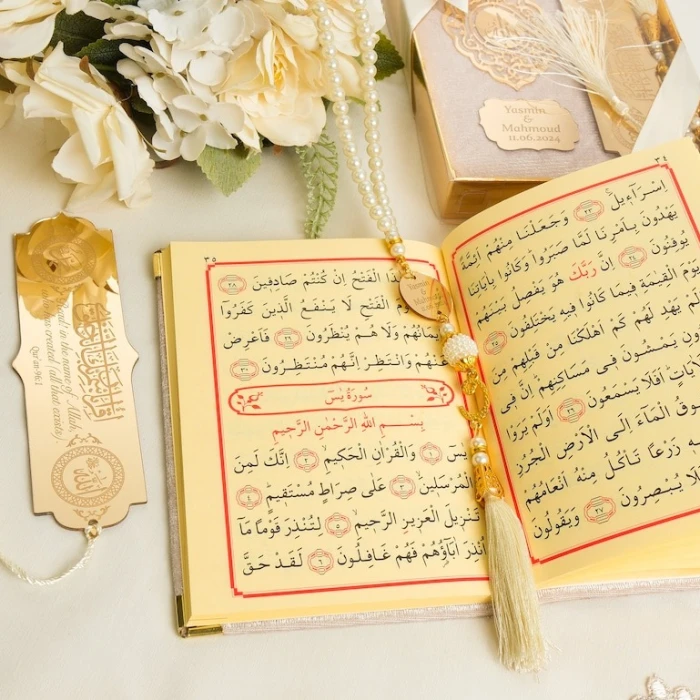 Yasmin
&
Mahmoud
11.06.2024
٣٤
اِسْرَٓاءِيلَ ٢٣ وَجَعَلْنَا مِنْهُمْ اَئِمَّةً
يَهْدُونَ بِاَمْرِنَا لَمَّا صَبَرُوا وَكَانُوا بِاٰيَاتِنَا
يُوقِنُونَ ٢٤ اِنَّ رَبَّكَ هُوَ يَفْصِلُ بَيْنَهُمْ
يَوْمَ الْقِيٰمَةِ فِيمَا كَانُوا فِيهِ يَخْتَلِفُونَ ٢٥
يَهْدِ لَهُمْ كَمْ اَهْلَكْنَا مِنْ قَبْلِهِمْ مِنَ
يَمْشُونَ فِى مَسَاكِنِهِمْ اِنَّ فِى
اَفَلَا يَسْمَعُونَ ٢٦ اَوَلَمْ يَرَوْا
نَسُوقُ الْمَٓاءَ اِلَى الْاَرْضِ الْجُرُزِ
زَرْعًا تَأْكُلُ مِنْهُ اَنْعَامُهُمْ
يُبْصِرُونَ ٢٧ وَيَقُولُونَ
٣٥
هٰذَا الْفَتْحُ اِنْ كُنْتُمْ صَادِقِينَ ٢٨
يَوْمَ الْفَتْحِ لَا يَنْفَعُ الَّذِينَ كَفَرُٓوا
اِيمَانُهُمْ وَلَا هُمْ يُنْظَرُونَ ٢٩ فَاَعْرِضْ
عَنْهُمْ وَانْتَظِرْ اِنَّهُمْ مُنْتَظِرُونَ ٣٠
سُورَةُ يٰسٓ
بِسْمِ اللهِ الرَّحْمٰنِ الرَّحِيمِ
يٰسٓ ١ وَالْقُرْاٰنِ الْحَكِيمِ ٢ اِنَّكَ لَمِنَ
الْمُرْسَلِينَ ٣ عَلٰى صِرَاطٍ مُسْتَقِيمٍ ٤
تَنْزِيلَ الْعَزِيزِ الرَّحِيمِ ٥ لِتُنْذِرَ قَوْمًا مَٓا
اُنْذِرَ اٰبَٓاؤُهُمْ فَهُمْ غَافِلُونَ ٦ لَقَدْ حَقَّ
اقرأ باسم ربك الذي خلق
in the name of
has created (all that exists)
Qur'an-96:1
الله